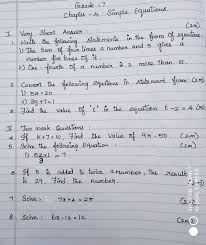 Grade : 7
Chapter - 4 Simple Equations
I. Very Short Answer : (2m)
1. Write the following statements in the form of equation.
a) The sum of four times a number and 5 gives a
number five times of it.
b) One-fourth of a number is 2 more than 5.
2. Convert the following equations in statement form : (2m)
i) 5x = 20
ii) 3y + 7 = 1
3. Find the value of 't' in the equations t - 2 = 4 (2m)
II. Two mark Questions
4. If k + 7 = 10, find the value of 9k - 50 (2m)
5. Solve the following equation :
= 7
6. If 5 is added to twice a number, the result
is 29. Find the number.
7. Solve: = 25 (2m)
8. Solve: = 12